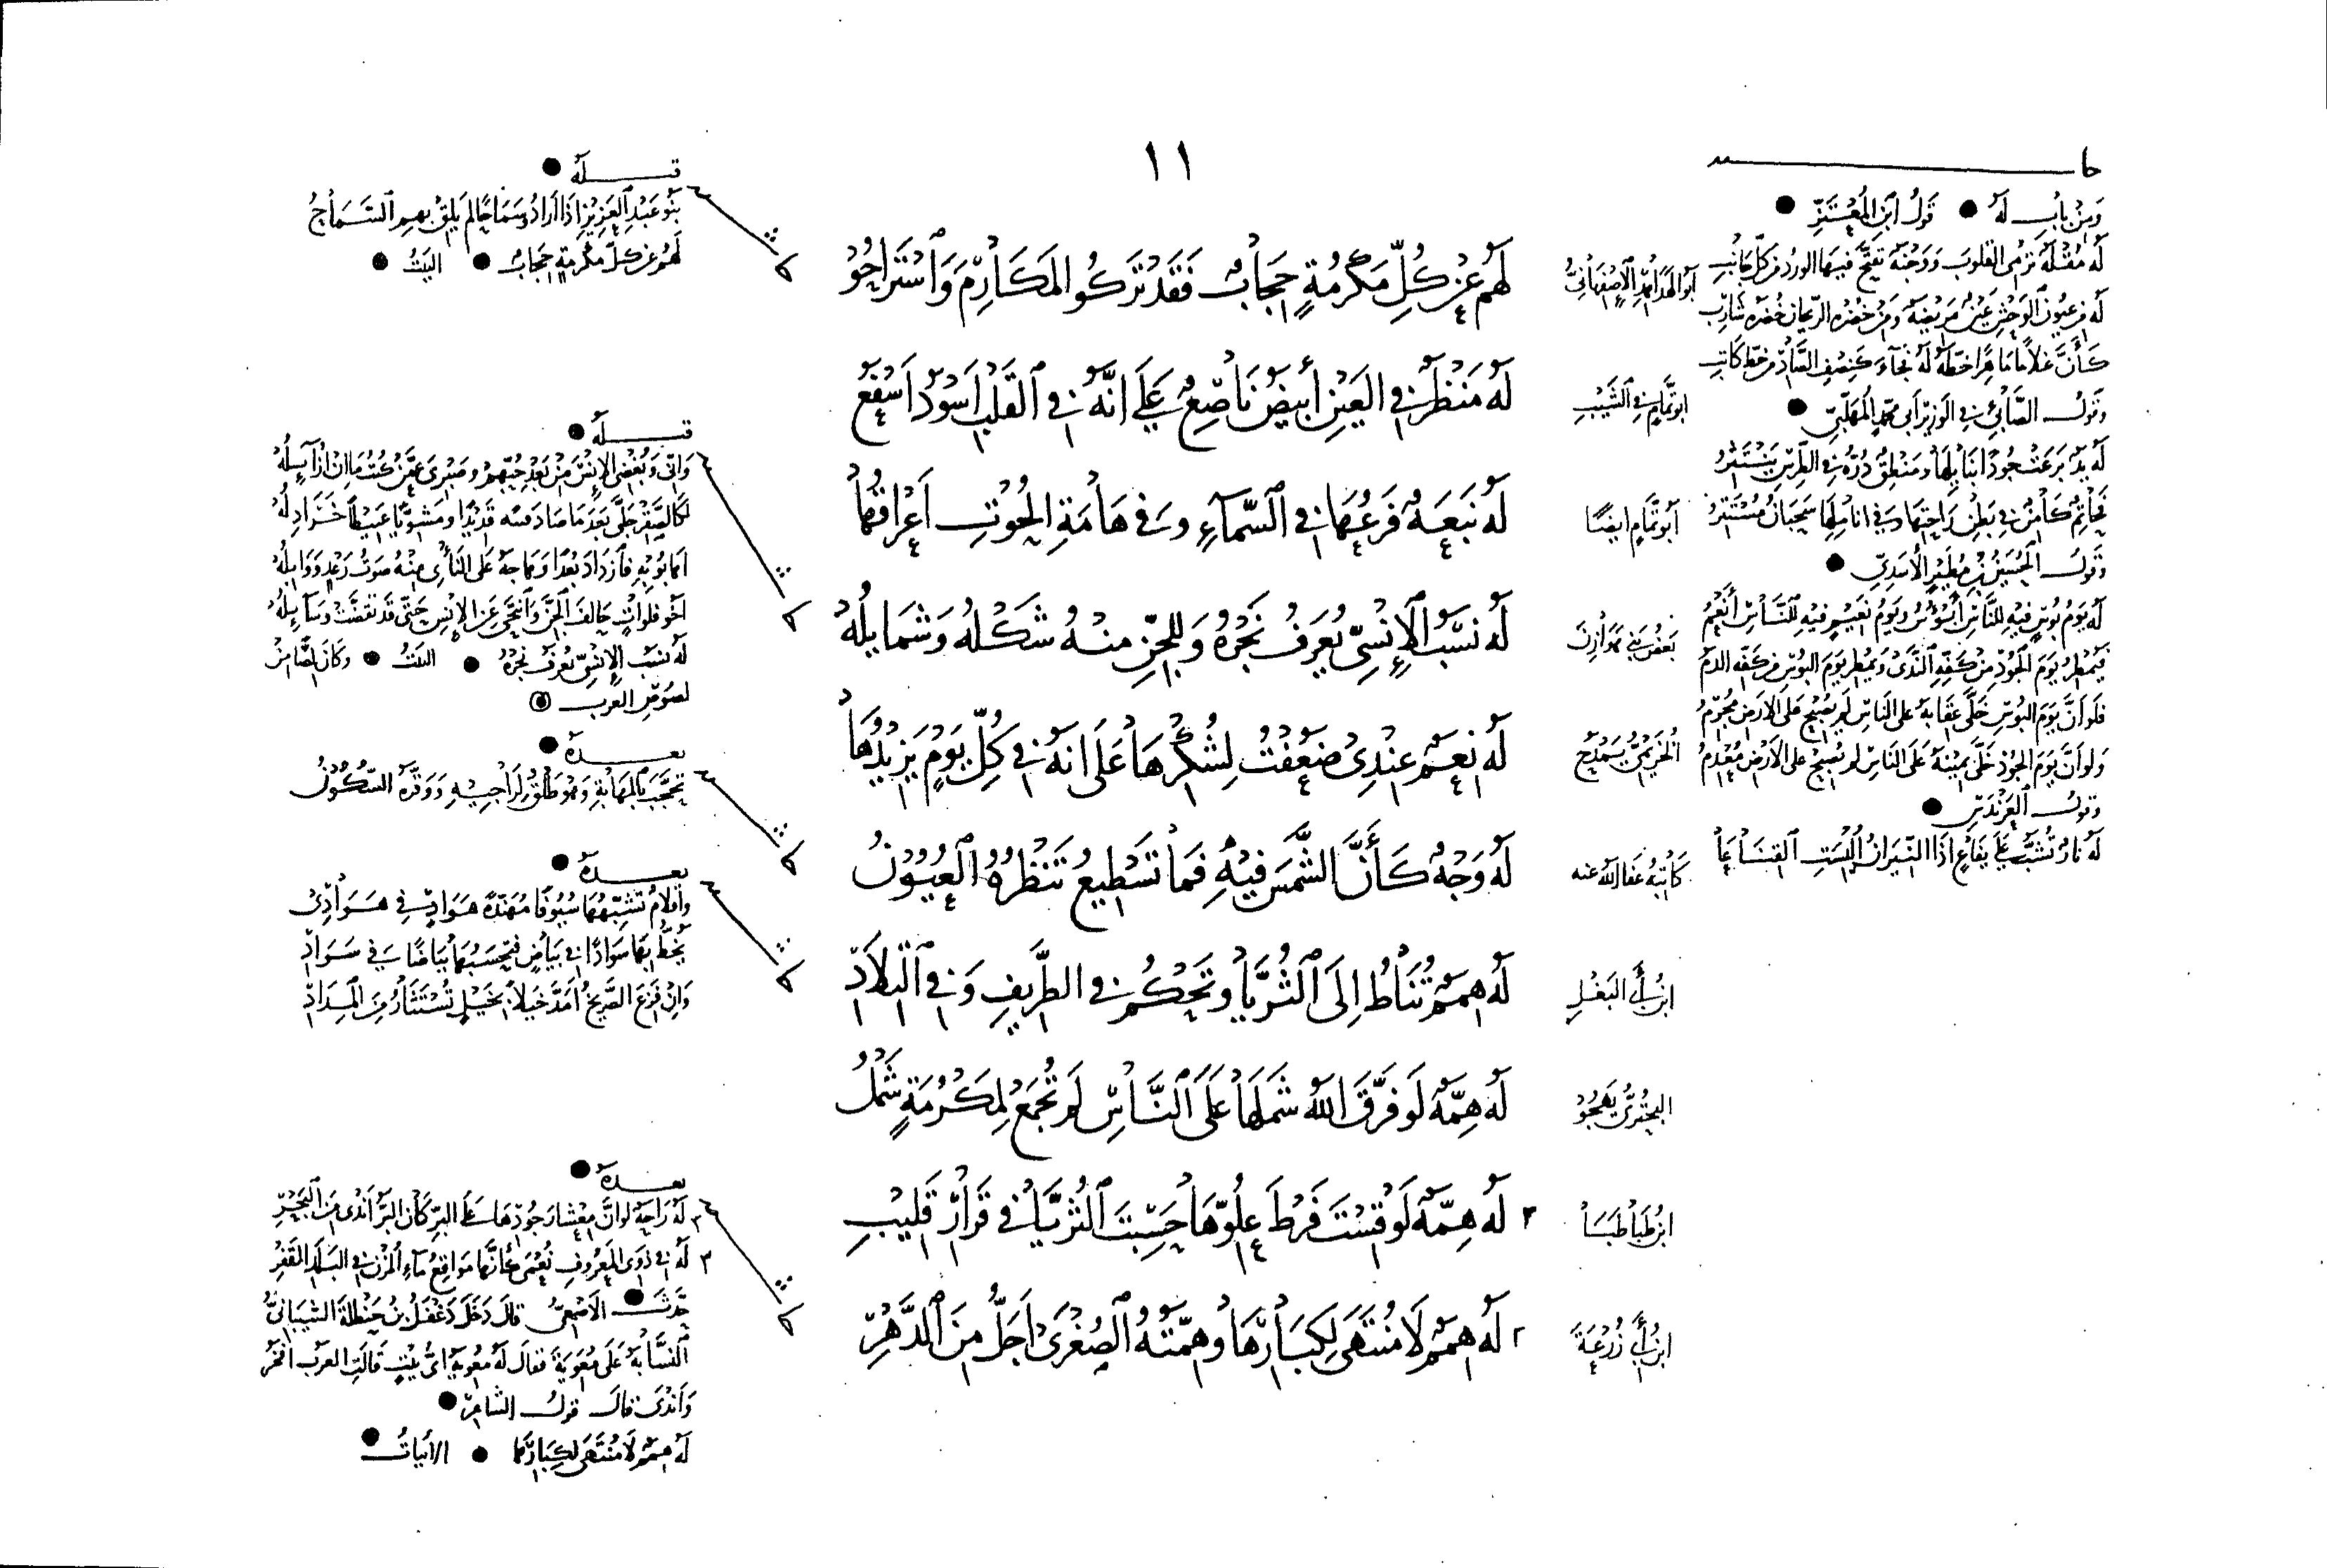 ١١
حاـــشية
وَمِنْ بَابِ لَهُ • قَوْلُ ابْنِ الْمُعْتَزِّ •
لَهُ مُقْلَةٌ تَرْمِي الْقُلُوبَ وَوَجْنَةٌ تَفَتَّحَ فِيهَا الوَرْدُ مِنْ كُلِّ جَانِبِ
لَهُ مِنْ عُيُونِ الْوَحْشِ عَيْنٌ مَرِيضَةٌ وَمِنْ خُضْرَةِ الرَّيْحَانِ خُضْرَةُ شَارِبِ
كَأَنَّ غُلَامًا مَاهِرًا خَطَّهُ لَهُ فَجَاءَ كَنِصْفِ الصَّادِ مِنْ خَطِّ كَاتِبِ
وَقَوْلُ الصَّابِئِ فِي الْوَزِيرِ أَبِي مُحَمَّدٍ الْمُهَلَّبِيِّ •
لَهُ يَدٌ بَرَعَتْ جُودًا بِنَايِلِهَا وَمَنْطِقٌ دُرُّهُ فِي الطِّرْسِ يَنْتَثِرُ
فَحَاتِمٌ كَامِنٌ فِي بَطْنِ رَاحَتِهَا وَفِي أَنَامِلِهَا سَحْبَانُ مُسْتَتِرُ
وَقَوْلُ الْحُسَيْنِ بْنِ مُطَيْرٍ الْأَسَدِيِّ •
لَهُ يَوْمُ بُؤْسٍ فِيهِ لِلنَّاسِ أَبْؤُسٌ وَيَوْمُ نَعِيمٍ فِيهِ لِلنَّاسِ أَنْعُمُ
فَيَمْطُرُ يَوْمَ الْجُودِ مِنْ كَفِّهِ النَّدَى وَيَمْطُرُ يَوْمَ الْبُؤْسِ مِنْ كَفِّهِ الدَّمُ
فَلَوْ أَنَّ يَوْمَ الْبُؤْسِ خَلَّى عِقَابَهُ عَلَى النَّاسِ لَمْ يُصْبِحْ عَلَى الْأَرْضِ مُجْرِمُ
وَلَوْ أَنَّ يَوْمَ الْجُودِ خَلَّى يَمِينَهُ عَلَى النَّاسِ لَمْ يُصْبِحْ عَلَى الْأَرْضِ مُعْدِمُ
وَقَوْلُ الْعَرَنْدَسِ •
لَهُ نَارٌ تُشَبُّ عَلَى يَفَاعٍ إِذَا النِّيرَانُ أُلْبِسَتِ الْقِنَاعَا
لَهُمْ عَنْ كُلِّ مَكْرُمَةٍ حِجَابٌ فَقَدْ تَرَكُوا الْمَكَارِمَ وَاسْتَرَاحُوا
أبو تمّام في الشَّيْبِ
لَهُ مَنْظَرٌ فِي الْعَيْنِ أَبْيَضُ نَاصِعٌ عَلَى أَنَّهُ فِي الْقَلْبِ أَسْوَدُ أَسْفَعُ
أبو تمّام ايضًا
لَهُ نَبْعَةٌ فَرْعُهَا فِي السَّمَاءِ وَفِي هَامَةِ الْحُوتِ أَعْرَاقُهَا
بَعْضُ بَنِي هَوَازِنَ
لَهُ نَسَبُ الْإِنْسِيِّ يُعْرَفُ نَجْرُهُ وَلِلْجِنِّ مِنْهُ شَكْلُهُ وَشَمَايِلُهُ
لَهُ نِعَمٌ عِنْدِي ضَعُفْتُ لِشُكْرِهَا عَلَى أَنَّهُ فِي كُلِّ يَوْمٍ يَزِيدُهَا
كَاتِبُهُ عَفَا اللَّهُ عَنْهُ
لَهُ وَجْهٌ كَأَنَّ الشَّمْسَ فِيهِ فَمَا تَسْطِيعُ تَنْظُرُهُ الْعُيُونُ
ابن أبي البَغْلِ
لَهُ هِمَمٌ تُنَاطُ إِلَى الثُّرَيَّا وَتَحْكُمُ فِي الطَّرِيفِ وَفِي التِّلَادِ
البحتري يهجو
لَهُ هِمَّةٌ لَوْ فَرَّقَ اللَّهُ شَمْلَهَا عَلَى النَّاسِ لَمْ تُجْمَعْ لِمَكْرُمَةٍ شَمْلُ
ابن طباطبا
٣ لَهُ هِمَّةٌ لَوْ قِسْتَ فَرْطَ عُلُوِّهَا حَسِبْتَ الثُّرَيَّا فِي قَرَارِ قَلِيبِ
ابن أبي زُرْعَةَ
٢ لَهُ هِمَمٌ لَا مُنْتَهَى لِكِبَارِهَا وَهِمَّتُهُ الصُّغْرَى أَجَلُّ مِنَ الدَّهْرِ
قبله •
بَنُو عَبْدِ الْعَزِيزِ إِذَا أَرَادُوا سَمَاحًا لَمْ يَلِقْ بِهِمِ السَّمَاحُ
لَهُمْ عَنْ كُلِّ مَكْرُمَةٍ حِجَابٌ • البَيْتُ •
قبله •
وَإِنِّي وَبُغْضِي الْإِنْسَ مِنْ بَعْدِ حُبِّهِمْ وَصَبْرِي عَمَّنْ كُنْتُ مَا إِنْ أُزَايِلُهُ
لَكَالصَّقْرِ جَلَّى بَعْدَمَا صَادَ فِتْيَةً قَدِيرًا وَمَشْوِيًّا عَبِيطًا خَرَادِلُهُ
أَهَابُوا بِهِ فَازْدَادَ بُعْدًا وَهَاجَهُ عَلَى النَّأْيِ مِنْهُ صَوْتُ رَعْدٍ وَوَابِلُهُ
أَخُو فَلَوَاتٍ حَالَفَ الْجِنَّ وَانْتَحَى عَنِ الْإِنْسِ حَتَّى قَدْ تَقَضَّتْ وَسَايِلُهُ
لَهُ نَسَبُ الْإِنْسِيِّ يُعْرَفُ نَجْرُهُ • البَيْتُ • وكان
لصوص العرب
بعده •
تَحَجَّبَ بِالْمَهَابَةِ وَهُوَ طَلْقٌ لِرَاجِيهِ وَوَقَّرَهُ السُّكُونُ
بعده •
وَأَقْلَامٌ تُشَبِّهُهَا سُيُوفًا مُهَنَّدَةً هَوَادٍ فِي هَوَادِي
يَخُطُّ بِهَا سَوَادًا فِي بَيَاضٍ فَتَحْسَبُهَا بَيَاضًا فِي سَوَادِ
وَإِنْ فَزِعَ الصَّرِيخُ أَمَدَّ خَيْلًا بِخَيْلٍ تُسْتَثَارُ مِنَ الْمِدَادِ
بعده •
٢ لَهُ رَاحَةٌ لَوْ أَنَّ مِعْشَارَ جُودِهَا عَلَى الْبَرِّ كَانَ الْبَرُّ أَنْدَى مِنَ الْبَحْرِ
٣ لَهُ فِي ذَوِي الْمَعْرُوفِ نُعْمَى كَأَنَّهَا مَوَاقِعُ مَاءِ الْمُزْنِ فِي الْبَلَدِ الْقَفْرِ
حَدَّثَ الأصمعيّ قَالَ دَخَلَ دَغْفَلُ بْنُ حَنْظَلَةَ الشَّيْبَانِيُّ
النَّسَّابَةُ عَلَى مُعَوِيَةَ فَقَالَ لَهُ مُعَوِيَةُ أَيُّ بَيْتٍ قَالَتِ الْعَرَبُ أَفْخَرُ
وَأَنْدَى قَالَ قَوْلُ الشَّاعِرِ •
لَهُ هِمَمٌ لَا مُنْتَهَى لِكِبَارِهَا • الأَبْيَاتُ